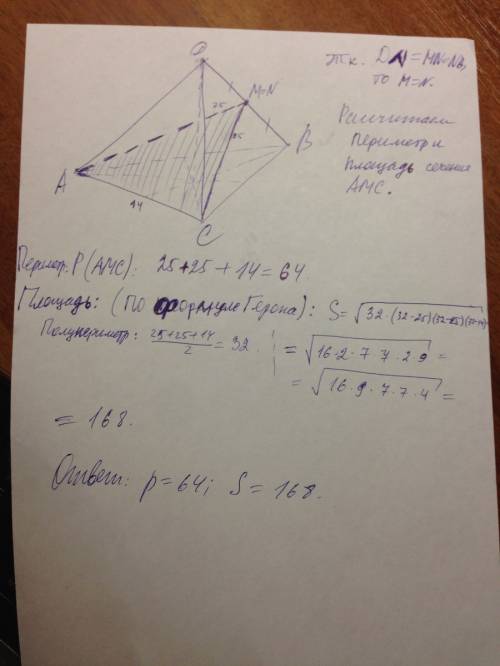 D
M=N
25
25
A
B
14
C
Т.к. DN=MN=NB,
то M=N.
Рассчитаем
периметр и
площадь сечения
AMC.
Периметр. P(AMC): 25+25+14=64
Площадь: (По формуле Герона): S=√32·(32-25)(32-25)(32-14)
Полупериметр: (25+25+14)/2=32.
=√16·2·7·7·2·9=
=√16·9·7·7·4=
=168.
Ответ: p=64; S=168.